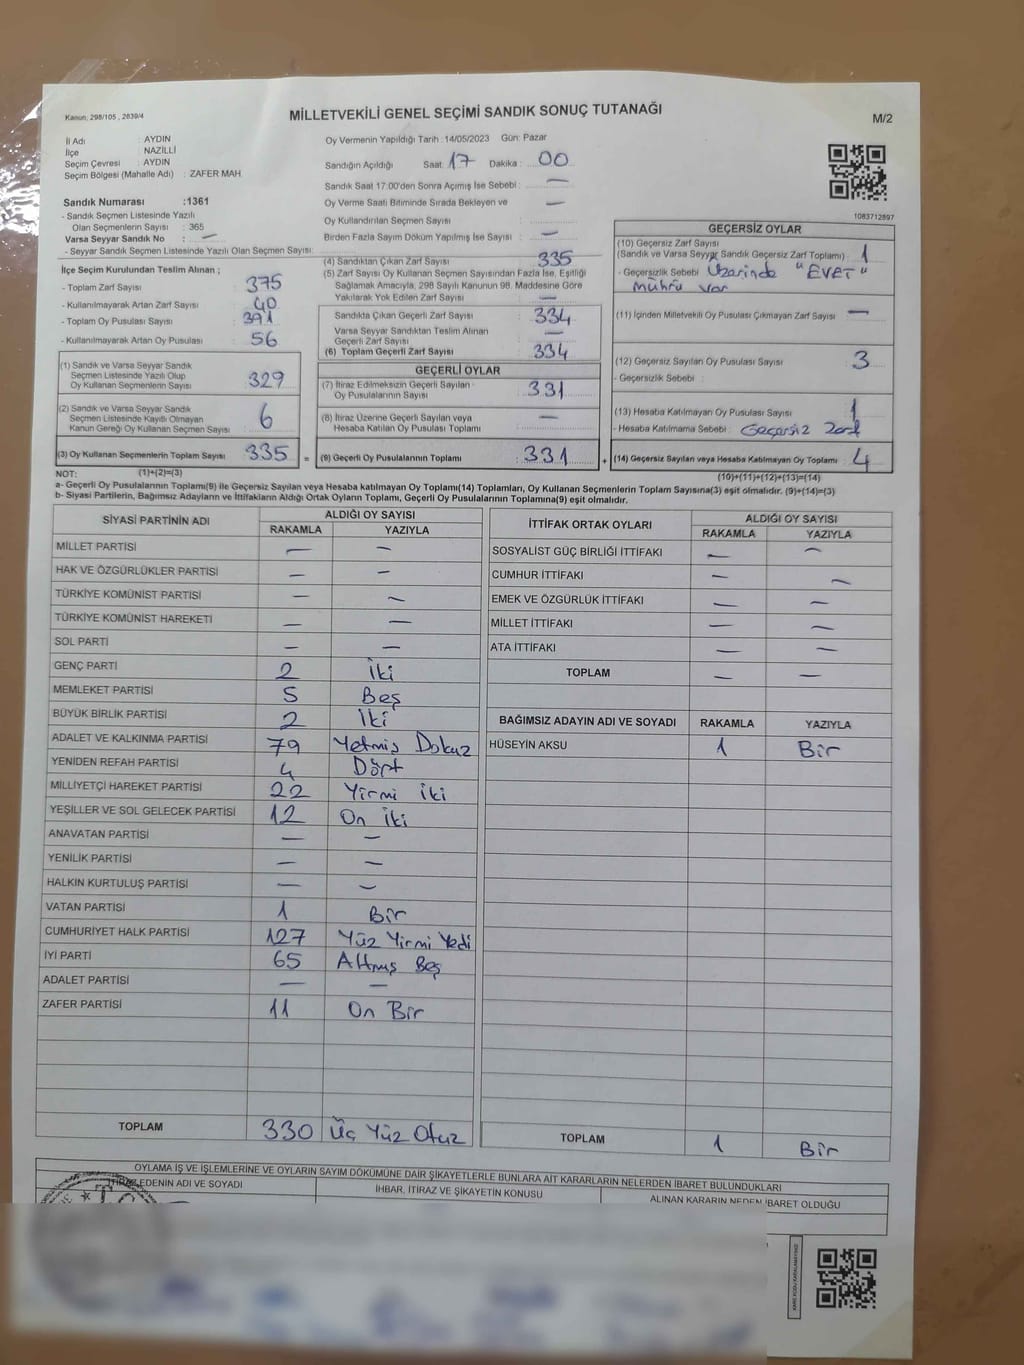 Kanun: 298/105 , 2839/4
MİLLETVEKİLİ GENEL SEÇİMİ SANDIK SONUÇ TUTANAĞI
M/2
İl Adı : AYDIN
İlçe : NAZİLLİ
Seçim Çevresi : AYDIN
Seçim Bölgesi (Mahalle Adı) : ZAFER MAH
Sandık Numarası :1361
- Sandık Seçmen Listesinde Yazılı
Olan Seçmenlerin Sayısı : 365
Varsa Seyyar Sandık No : —
- Seyyar Sandık Seçmen Listesinde Yazılı Olan Seçmen Sayısı:
Oy Vermenin Yapıldığı Tarih : 14/05/2023 Gün: Pazar
Sandığın Açıldığı Saat: 17 Dakika : 00
Sandık Saat 17:00'den Sonra Açımış İse Sebebi : —
Oy Verme Saati Bitiminde Sırada Bekleyen ve —
Oy Kullandırılan Seçmen Sayısı :
Birden Fazla Sayım Döküm Yapılmış İse Sayısı : —
1083712897
İlçe Seçim Kurulundan Teslim Alınan ;
- Toplam Zarf Sayısı : 375
- Kullanılmayarak Artan Zarf Sayısı : 40
- Toplam Oy Pusulası Sayısı : 391
- Kullanılmayarak Artan Oy Pusulası : 56
(1) Sandık ve Varsa Seyyar Sandık
Seçmen Listesinde Yazılı Olup
Oy Kullanan Seçmenlerin Sayısı : 329
(2) Sandık ve Varsa Seyyar Sandık
Seçmen Listesinde Kayıtlı Olmayan
Kanun Gereği Oy Kullanan Seçmen Sayısı : 6
(3) Oy Kullanan Seçmenlerin Toplam Sayısı : 335 =
(4) Sandıktan Çıkan Zarf Sayısı : 335
(5) Zarf Sayısı Oy Kullanan Seçmen Sayısından Fazla İse, Eşitliği
Sağlamak Amacıyla, 298 Sayılı Kanunun 98. Maddesine Göre
Yakılarak Yok Edilen Zarf Sayısı : —
Sandıkta Çıkan Geçerli Zarf Sayısı : 334
Varsa Seyyar Sandıktan Teslim Alınan
Geçerli Zarf Sayısı : —
(6) Toplam Geçerli Zarf Sayısı : 334
GEÇERLİ OYLAR
(7) İtiraz Edilmeksizin Geçerli Sayılan
Oy Pusulalarının Sayısı : 331
(8) İtiraz Üzerine Geçerli Sayılan veya
Hesaba Katılan Oy Pusulaları Toplamı : —
(9) Geçerli Oy Pusulalarının Toplamı : 331 +
GEÇERSİZ OYLAR
(10) Geçersiz Zarf Sayısı
(Sandık ve Varsa Seyyar Sandık Geçersiz Zarf Toplamı) : 1
- Geçersizlik Sebebi : Üzerinde "EVET"
mührü var
(11) İçinden Milletvekili Oy Pusulası Çıkmayan Zarf Sayısı : —
(12) Geçersiz Sayılan Oy Pusulası Sayısı : 3
- Geçersizlik Sebebi :
(13) Hesaba Katılmayan Oy Pusulası Sayısı : 1
- Hesaba Katılmama Sebebi : Geçersiz Zarf
(14) Geçersiz Sayılan veya Hesaba Katılmayan Oy Toplamı : 4
NOT: (1)+(2)=(3)
(10)+(11)+(12)+(13)=(14)
a- Geçerli Oy Pusulalarının Toplamı(9) ile Geçersiz Sayılan veya Hesaba katılmayan Oy Toplamı(14) Toplamları, Oy Kullanan Seçmenlerin Toplam Sayısına(3) eşit olmalıdır. (9)+(14)=(3)
b- Siyasi Partilerin, Bağımsız Adayların ve İttifakların Aldığı Ortak Oyların Toplamı, Geçerli Oy Pusulalarının Toplamına(9) eşit olmalıdır.
SİYASİ PARTİNİN ADI ALDIĞI OY SAYISI
RAKAMLA YAZIYLA
MİLLET PARTİSİ — —
HAK VE ÖZGÜRLÜKLER PARTİSİ — —
TÜRKİYE KOMÜNİST PARTİSİ — —
TÜRKİYE KOMÜNİST HAREKETİ — —
SOL PARTİ — —
GENÇ PARTİ 2 İki
MEMLEKET PARTİSİ 5 Beş
BÜYÜK BİRLİK PARTİSİ 2 İki
ADALET VE KALKINMA PARTİSİ 79 Yetmiş Dokuz
YENİDEN REFAH PARTİSİ 4 Dört
MİLLİYETÇİ HAREKET PARTİSİ 22 Yirmi İki
YEŞİLLER VE SOL GELECEK PARTİSİ 12 On İki
ANAVATAN PARTİSİ — —
YENİLİK PARTİSİ — —
HALKIN KURTULUŞ PARTİSİ — —
VATAN PARTİSİ 1 Bir
CUMHURİYET HALK PARTİSİ 127 Yüz Yirmi Yedi
İYİ PARTİ 65 Altmış Beş
ADALET PARTİSİ — —
ZAFER PARTİSİ 11 On Bir
TOPLAM 330 Üç Yüz Otuz
İTTİFAK ORTAK OYLARI ALDIĞI OY SAYISI
RAKAMLA YAZIYLA
SOSYALİST GÜÇ BİRLİĞİ İTTİFAKI — —
CUMHUR İTTİFAKI — —
EMEK VE ÖZGÜRLÜK İTTİFAKI — —
MİLLET İTTİFAKI — —
ATA İTTİFAKI — —
TOPLAM — —
BAĞIMSIZ ADAYIN ADI VE SOYADI RAKAMLA YAZIYLA
HÜSEYİN AKSU 1 Bir
TOPLAM 1 Bir
OYLAMA İŞ VE İŞLEMLERİNE VE OYLARIN SAYIM DÖKÜMÜNE DAİR ŞİKAYETLERLE BUNLARA AİT KARARLARIN NELERDEN İBARET BULUNDUKLARI
İTİRAZ EDENİN ADI VE SOYADI İHBAR, İTİRAZ VE ŞİKAYETİN KONUSU ALINAN KARARIN NEDEN İBARET OLDUĞU